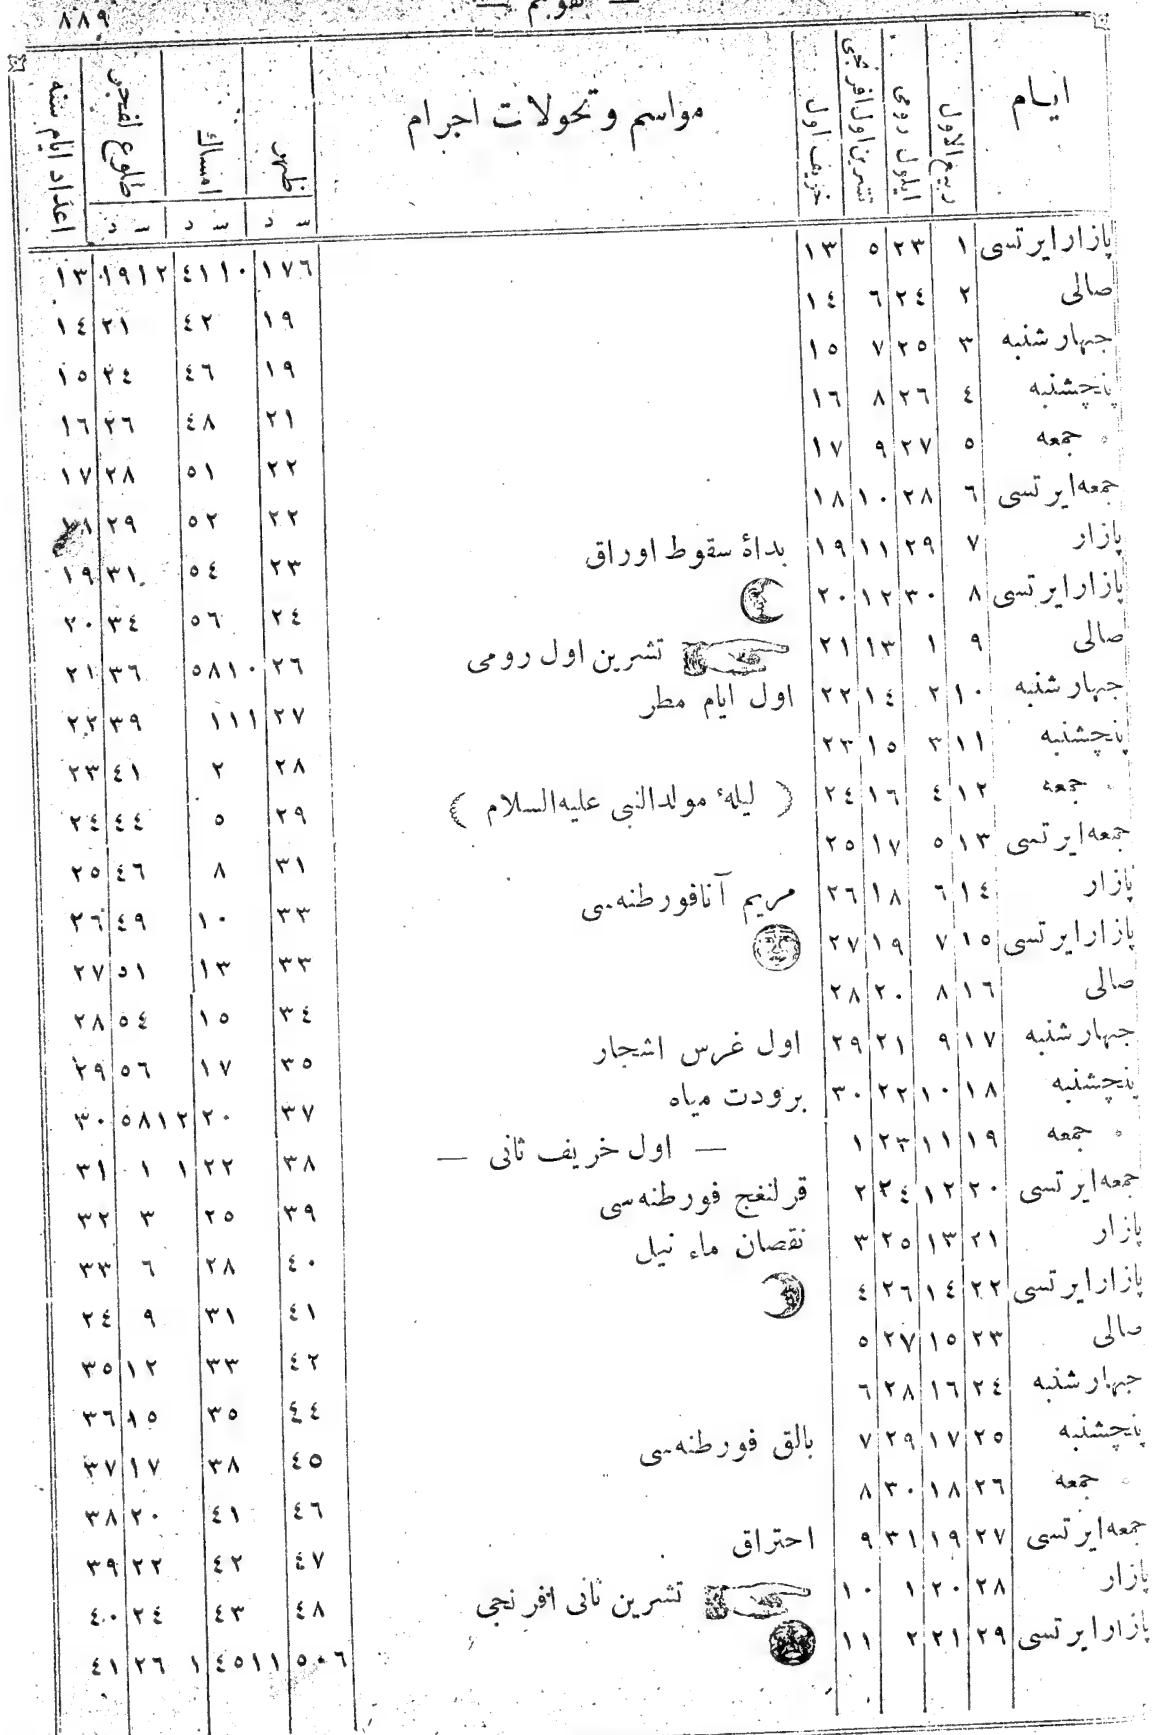 ٨٨٩ — تقويم —
ايام | ربيع الاول | ايلول رومى | تشرين اول افرنجى | خزيف اول | مواسم و تحولات اجرام | ظهر | امساك | طلوع الفجر | اعداد ايام سنه
س د | س د | س د
پازار ايرتسى ١ ٢٣ ٥ ١٣ | ١٧ ٦ | ٤١ ١٠ | ١٩ ١٢ | ١٣
صالى ٢ ٢٤ ٦ ١٤ | ١٩ | ٤٢ | ٢١ | ١٤
جهار شنبه ٣ ٢٥ ٧ ١٥ | ١٩ | ٤٦ | ٢٤ | ١٥
پنچشنبه ٤ ٢٦ ٨ ١٦ | ٢١ | ٤٨ | ٢٦ | ١٦
جمعه ٥ ٢٧ ٩ ١٧ | ٢٢ | ٥١ | ٢٨ | ١٧
جمعه ايرتسى ٦ ٢٨ ١٠ ١٨ | ٢٢ | ٥٢ | ٢٩ | ١٨
پازار ٧ ٢٩ ١١ ١٩ بدأة سقوط اوراق | ٢٣ | ٥٤ | ٣١ | ١٩
پازار ايرتسى ٨ ٣٠ ١٢ ٢٠ | ٢٤ | ٥٦ | ٣٤ | ٢٠
صالى ٩ ١ ١٣ ٢١ تشرين اول رومى | ٢٦ | ٥٨ ١٠ | ٣٦ | ٢١
جهار شنبه ١٠ ٢ ١٤ ٢٢ اول ايام مطر | ٢٧ | ١ ١١ | ٣٩ | ٢٢
پنچشنبه ١١ ٣ ١٥ ٢٣ | ٢٨ | ٢ | ٤١ | ٢٣
جمعه ١٢ ٤ ١٦ ٢٤ ( ليلهٔ مولدالنبى عليه السلام ) | ٢٩ | ٥ | ٤٤ | ٢٤
جمعه ايرتسى ١٣ ٥ ١٧ ٢٥ | ٣١ | ٨ | ٤٦ | ٢٥
پازار ١٤ ٦ ١٨ ٢٦ مريم آنافورطنه سى | ٣٣ | ١٠ | ٤٩ | ٢٦
پازار ايرتسى ١٥ ٧ ١٩ ٢٧ | ٣٣ | ١٣ | ٥١ | ٢٧
صالى ١٦ ٨ ٢٠ ٢٨ | ٣٤ | ١٥ | ٥٤ | ٢٨
جهار شنبه ١٧ ٩ ٢١ ٢٩ اول غرس اشجار | ٣٥ | ١٧ | ٥٦ | ٢٩
پنچشنبه ١٨ ١٠ ٢٢ ٣٠ برودت مياه | ٣٧ | ٢٠ | ٥٨ ١٢ | ٣٠
جمعه ١٩ ١١ ٢٣ ١ — اول خريف ثانى — | ٣٨ | ٢٢ | ١ ١ | ٣١
جمعه ايرتسى ٢٠ ١٢ ٢٤ ٢ قرلنغج فورطنه سى | ٣٩ | ٢٥ | ٣ | ٣٢
پازار ٢١ ١٣ ٢٥ ٣ نقصان ماء نيل | ٤٠ | ٢٨ | ٦ | ٣٣
پازار ايرتسى ٢٢ ١٤ ٢٦ ٤ | ٤١ | ٣١ | ٩ | ٢٤
صالى ٢٣ ١٥ ٢٧ ٥ | ٤٢ | ٣٣ | ١٢ | ٣٥
جهار شنبه ٢٤ ١٦ ٢٨ ٦ | ٤٤ | ٣٥ | ١٥ | ٣٦
پنچشنبه ٢٥ ١٧ ٢٩ ٧ بالق فورطنه سى | ٤٥ | ٣٨ | ١٧ | ٣٧
جمعه ٢٦ ١٨ ٣٠ ٨ | ٤٦ | ٤١ | ٢٠ | ٣٨
جمعه ايرتسى ٢٧ ١٩ ٣١ ٩ احتراق | ٤٧ | ٤٢ | ٢٢ | ٣٩
پازار ٢٨ ٢٠ ١ ١٠ تشرين ثانى افرنجى | ٤٨ | ٤٣ | ٢٤ | ٤٠
پازار ايرتسى ٢٩ ٢١ ٢ ١١ | ٥٠ ٦ | ٤٥ ١١ | ٢٦ ١ | ٤١